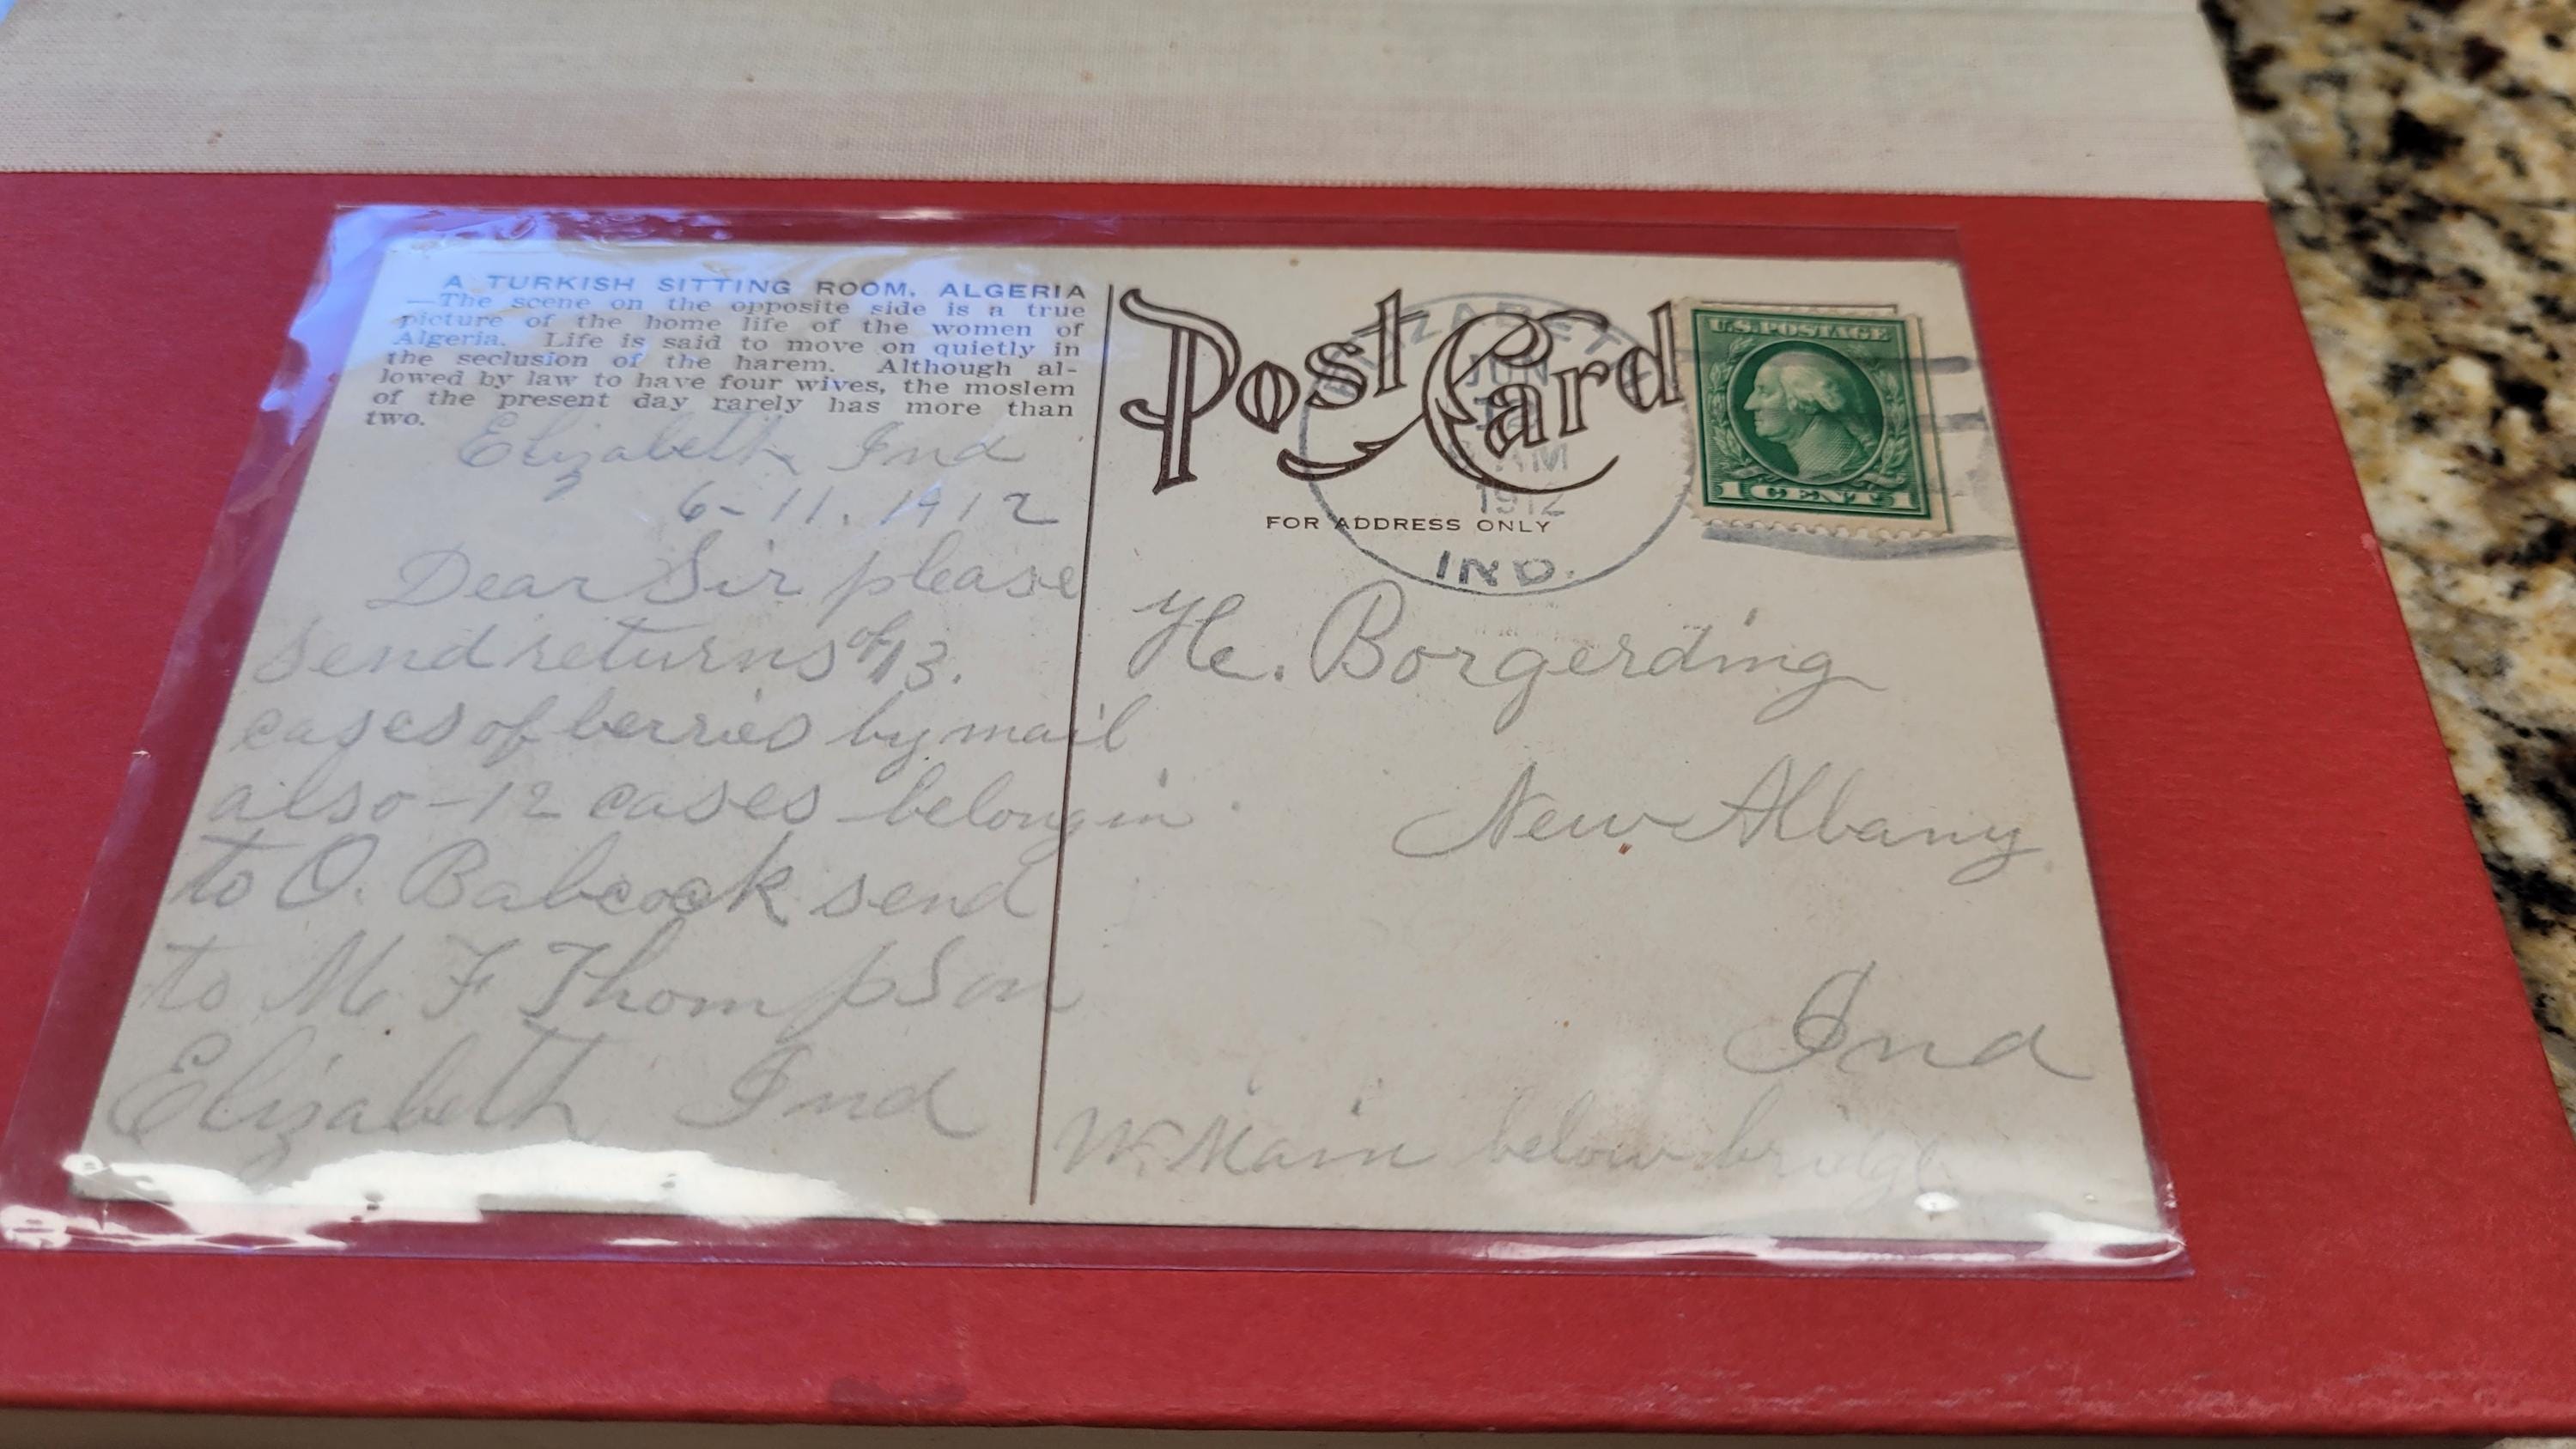 A TURKISH SITTING ROOM, ALGERIA
—The scene on the opposite side is a true
picture of the home life of the women of
Algeria. Life is said to move on quietly in
the seclusion of the harem. Although al-
lowed by law to have four wives, the moslem
of the present day rarely has more than
two.
Elizabeth Ind
6-11. 1912
Dear Sir please
send returns of 13.
cases of berries by mail
also - 12 cases belongin
to O. Babcock send
to M F Thompson
Elizabeth Ind
Post Card
FOR ADDRESS ONLY
ELIZABETH
JUN
12
AM
1912
IND.
U.S. POSTAGE
1 CENT 1
Borgerding
New Albany
Ind
W. Main below bridge